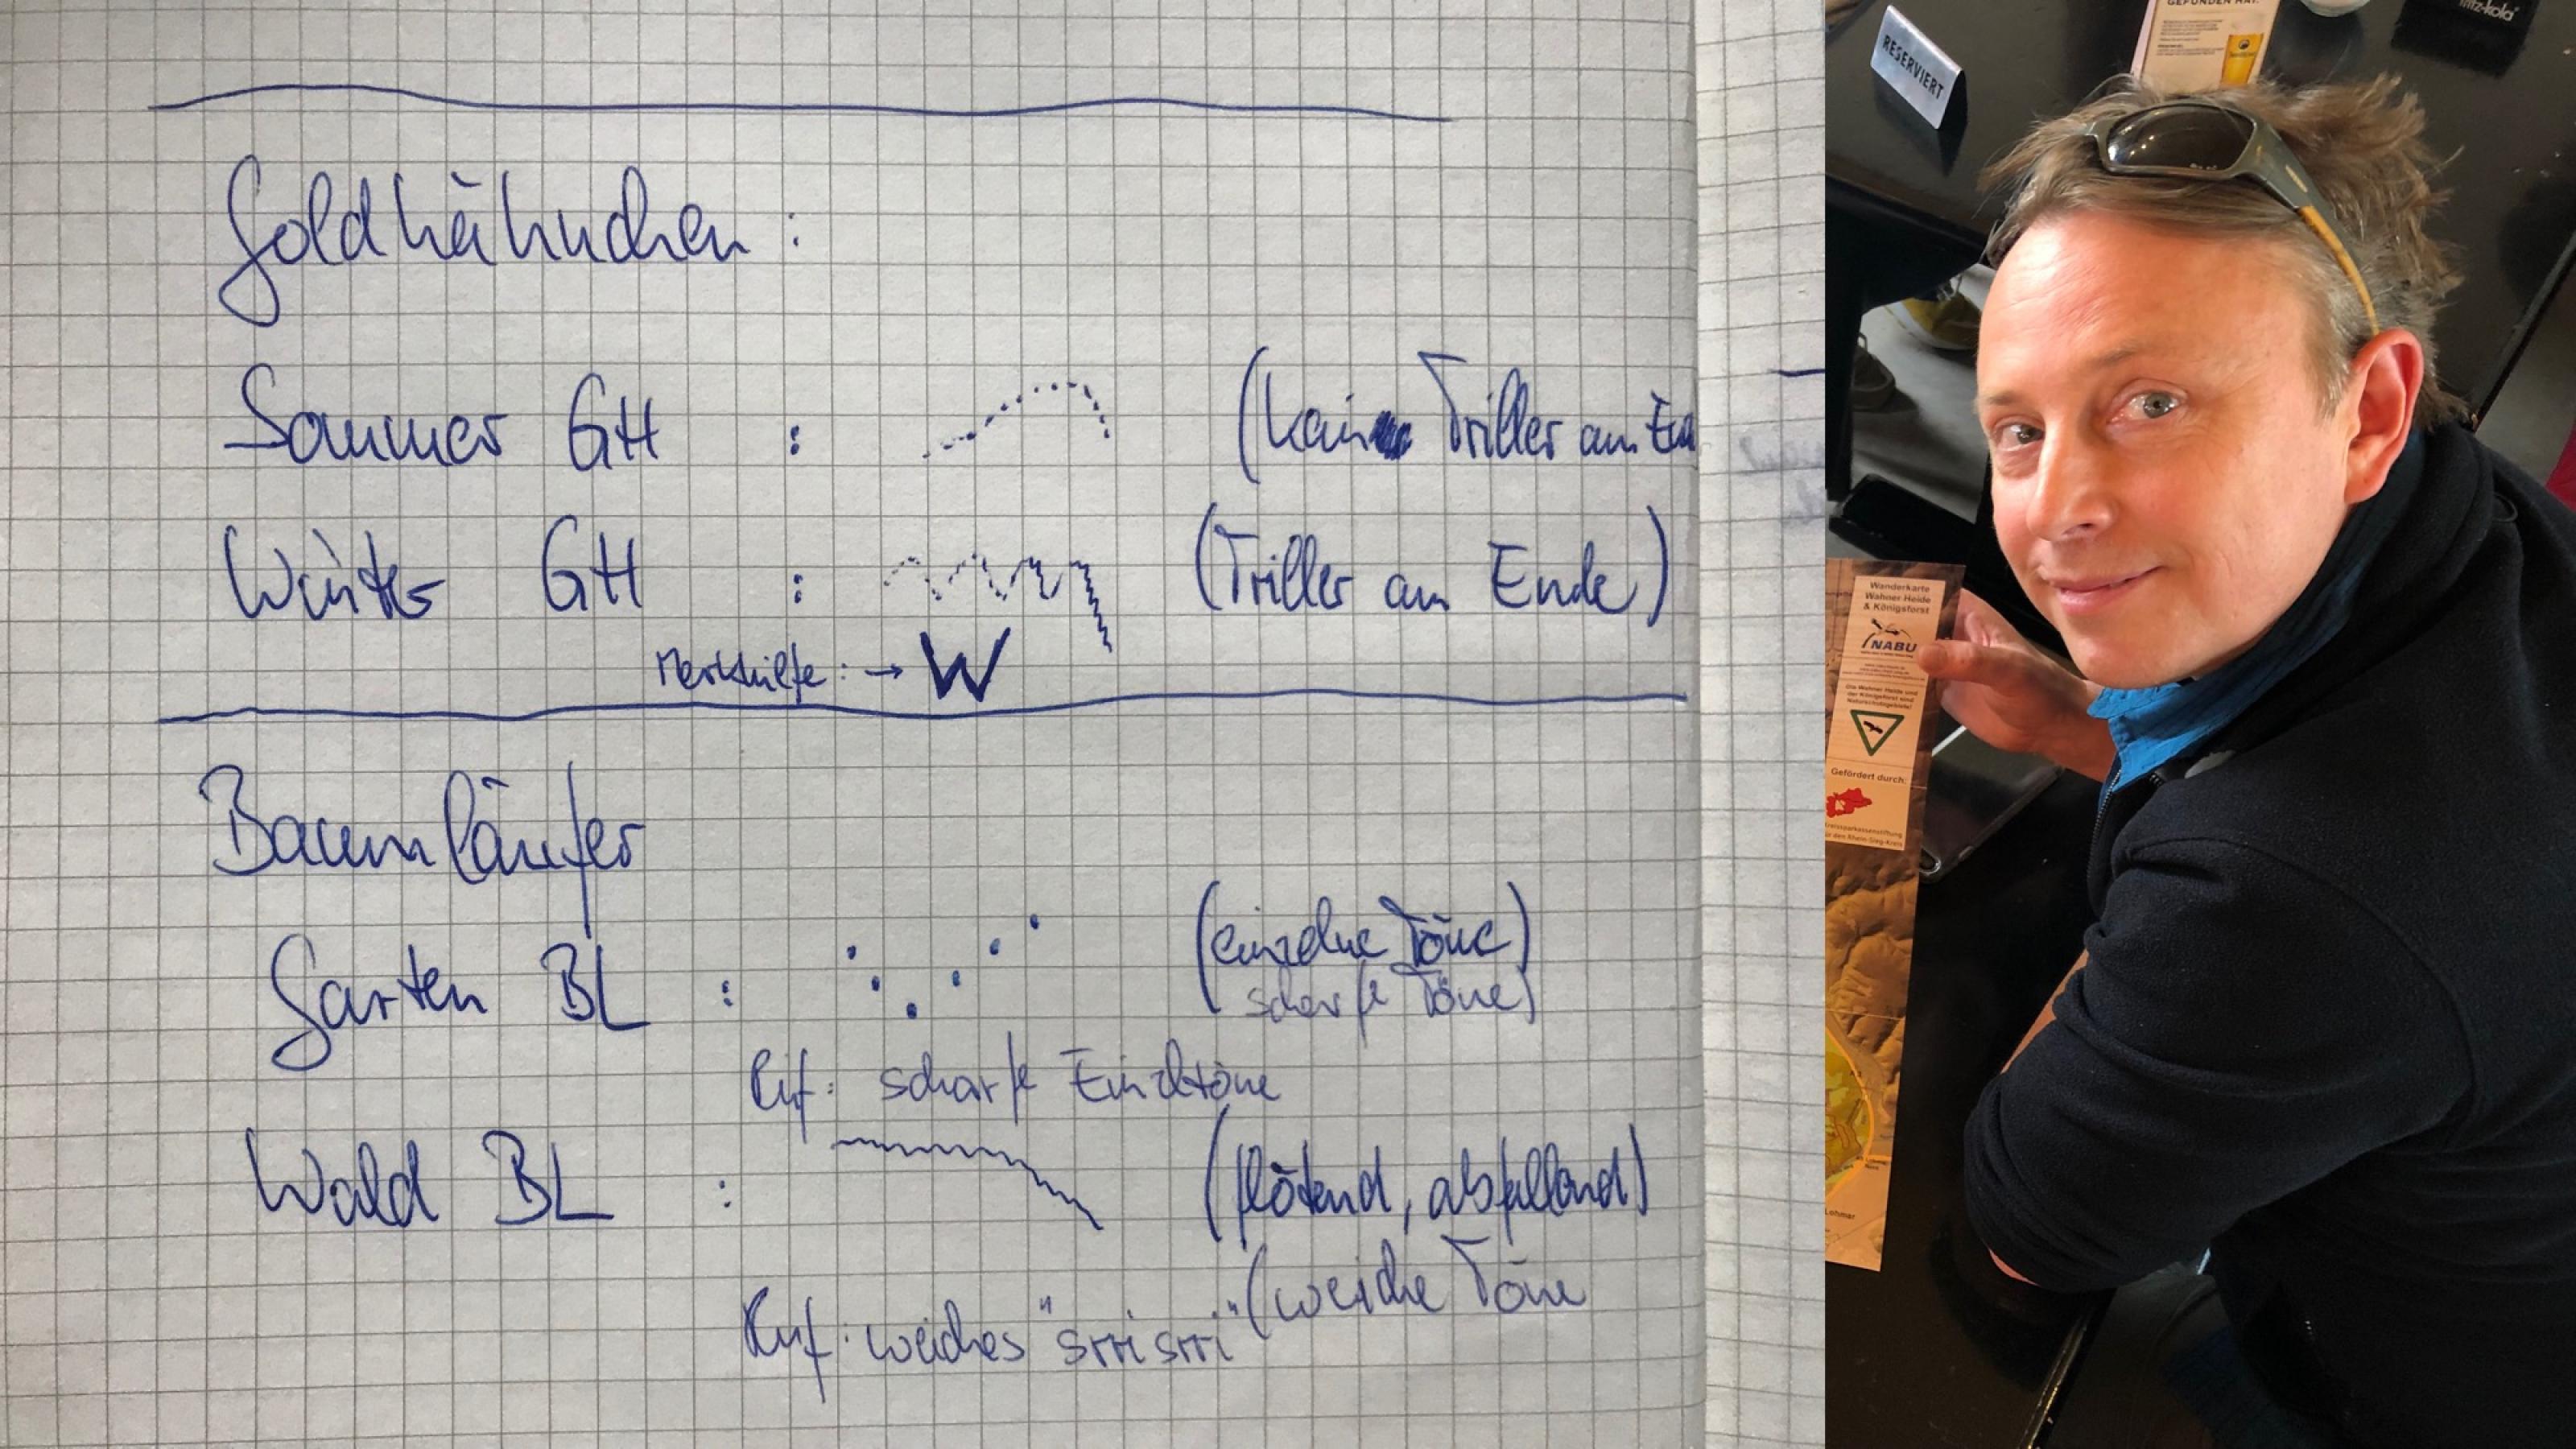 Goldhähnchen :
Sommer GH : (kein Triller am
Winter GH : (Triller am Ende)
Merkhilfe : → W
Baumläufer
Garten BL : (einzelne Töne)
scharfe Töne)
Ruf: scharfe Einzeltöne
Wald BL : (flötend, abfallend)
(weiche Töne
Ruf: weiches "srri srri"
GEFUNDEN HAT.
fritz-kola
RESERVIERT
Wanderkarte
Wahner Heide
& Königsforst
NABU
Die Wahner Heide und
der Königsforst sind
Naturschutzgebiete!
Gefördert durch:
Kreissparkassenstiftung
für den Rhein-Sieg-Kreis
Lohmar